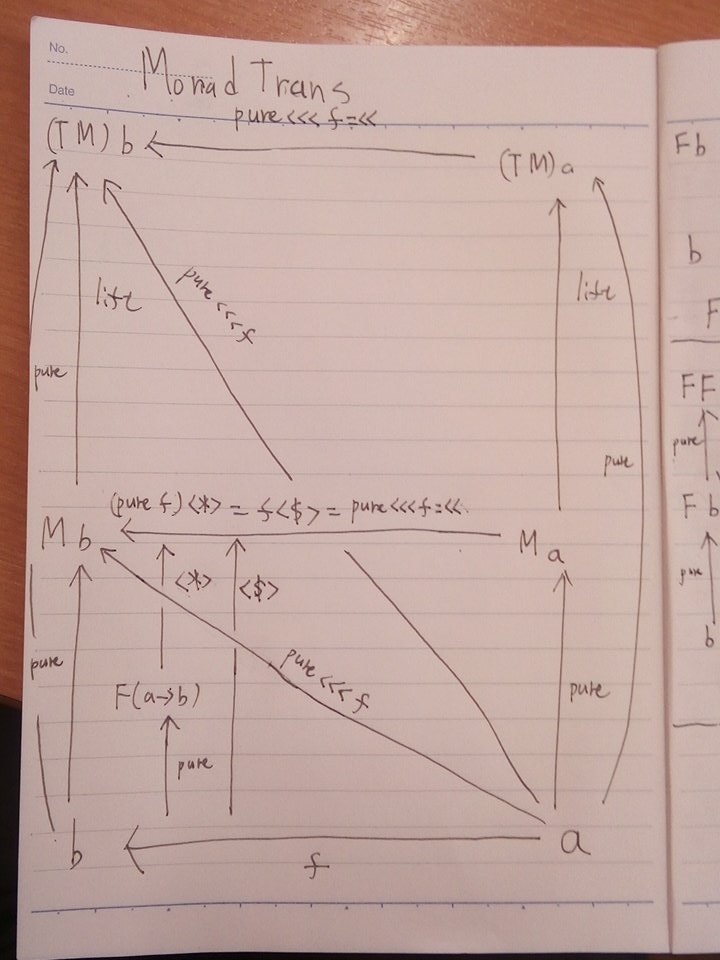 No.
Date
Monad Trans
pure <<< f =<<
(TM) b
(TM) a
lift
pure <<< f
lift
pure
pure
(pure f) <*> = f <$> = pure <<< f =<<
M b
M a
<*>
<$>
pure <<< f
pure
F(a→b)
pure
pure
b
f
a
F b
b
F
FF
pure
F b
pure
b